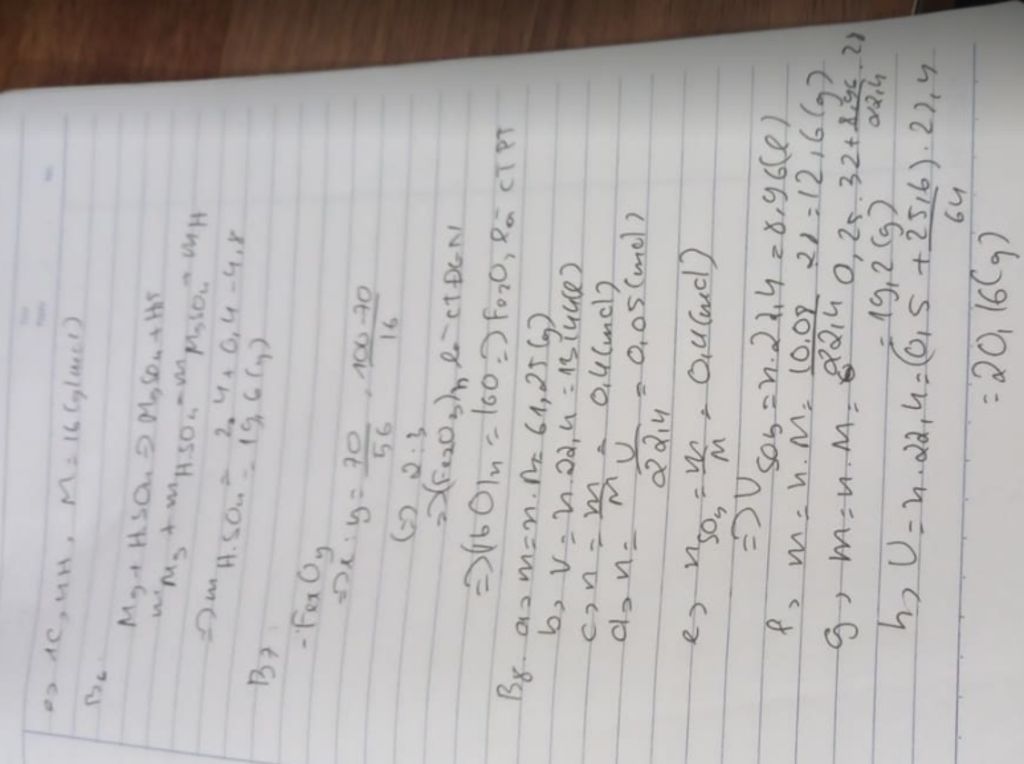 e, 1C, 4H, M = 16(g/mol)
B6.
Mg + H2SO4 => MgSO4 + H2
mMg + mH2SO4 = mMgSO4 + mH2
=> mH2SO4 = 24 + 0,4 - 4,8
= 19,6(g)
B7:
- FexOy
=> x : y = 70/56 : 100-70/16
(=) 2:3
=> (Fe2O3)n là CTĐGN
=> 160.n = 160 => Fe2O3 là CTPT
B8. a, m = n.M = 61,25(g)
b, V = n.22,4 = 13,44(l)
c, n = m/M = 0,4(mol)
d, n = V/22,4 = 0,05(mol)
e, nSO3 = m/M = 0,4(mol)
=> VSO3 = n.22,4 = 8,96(l)
f, m = n.M = 10,08/22,4 . 28 = 12,6(g)
g, m = n.M = 0,25.32 + 8,96/22,4 . 28
= 19,2(g)
h, V = n.22,4 = (0,5 + 25,6/64).22,4
= 20,16(g)